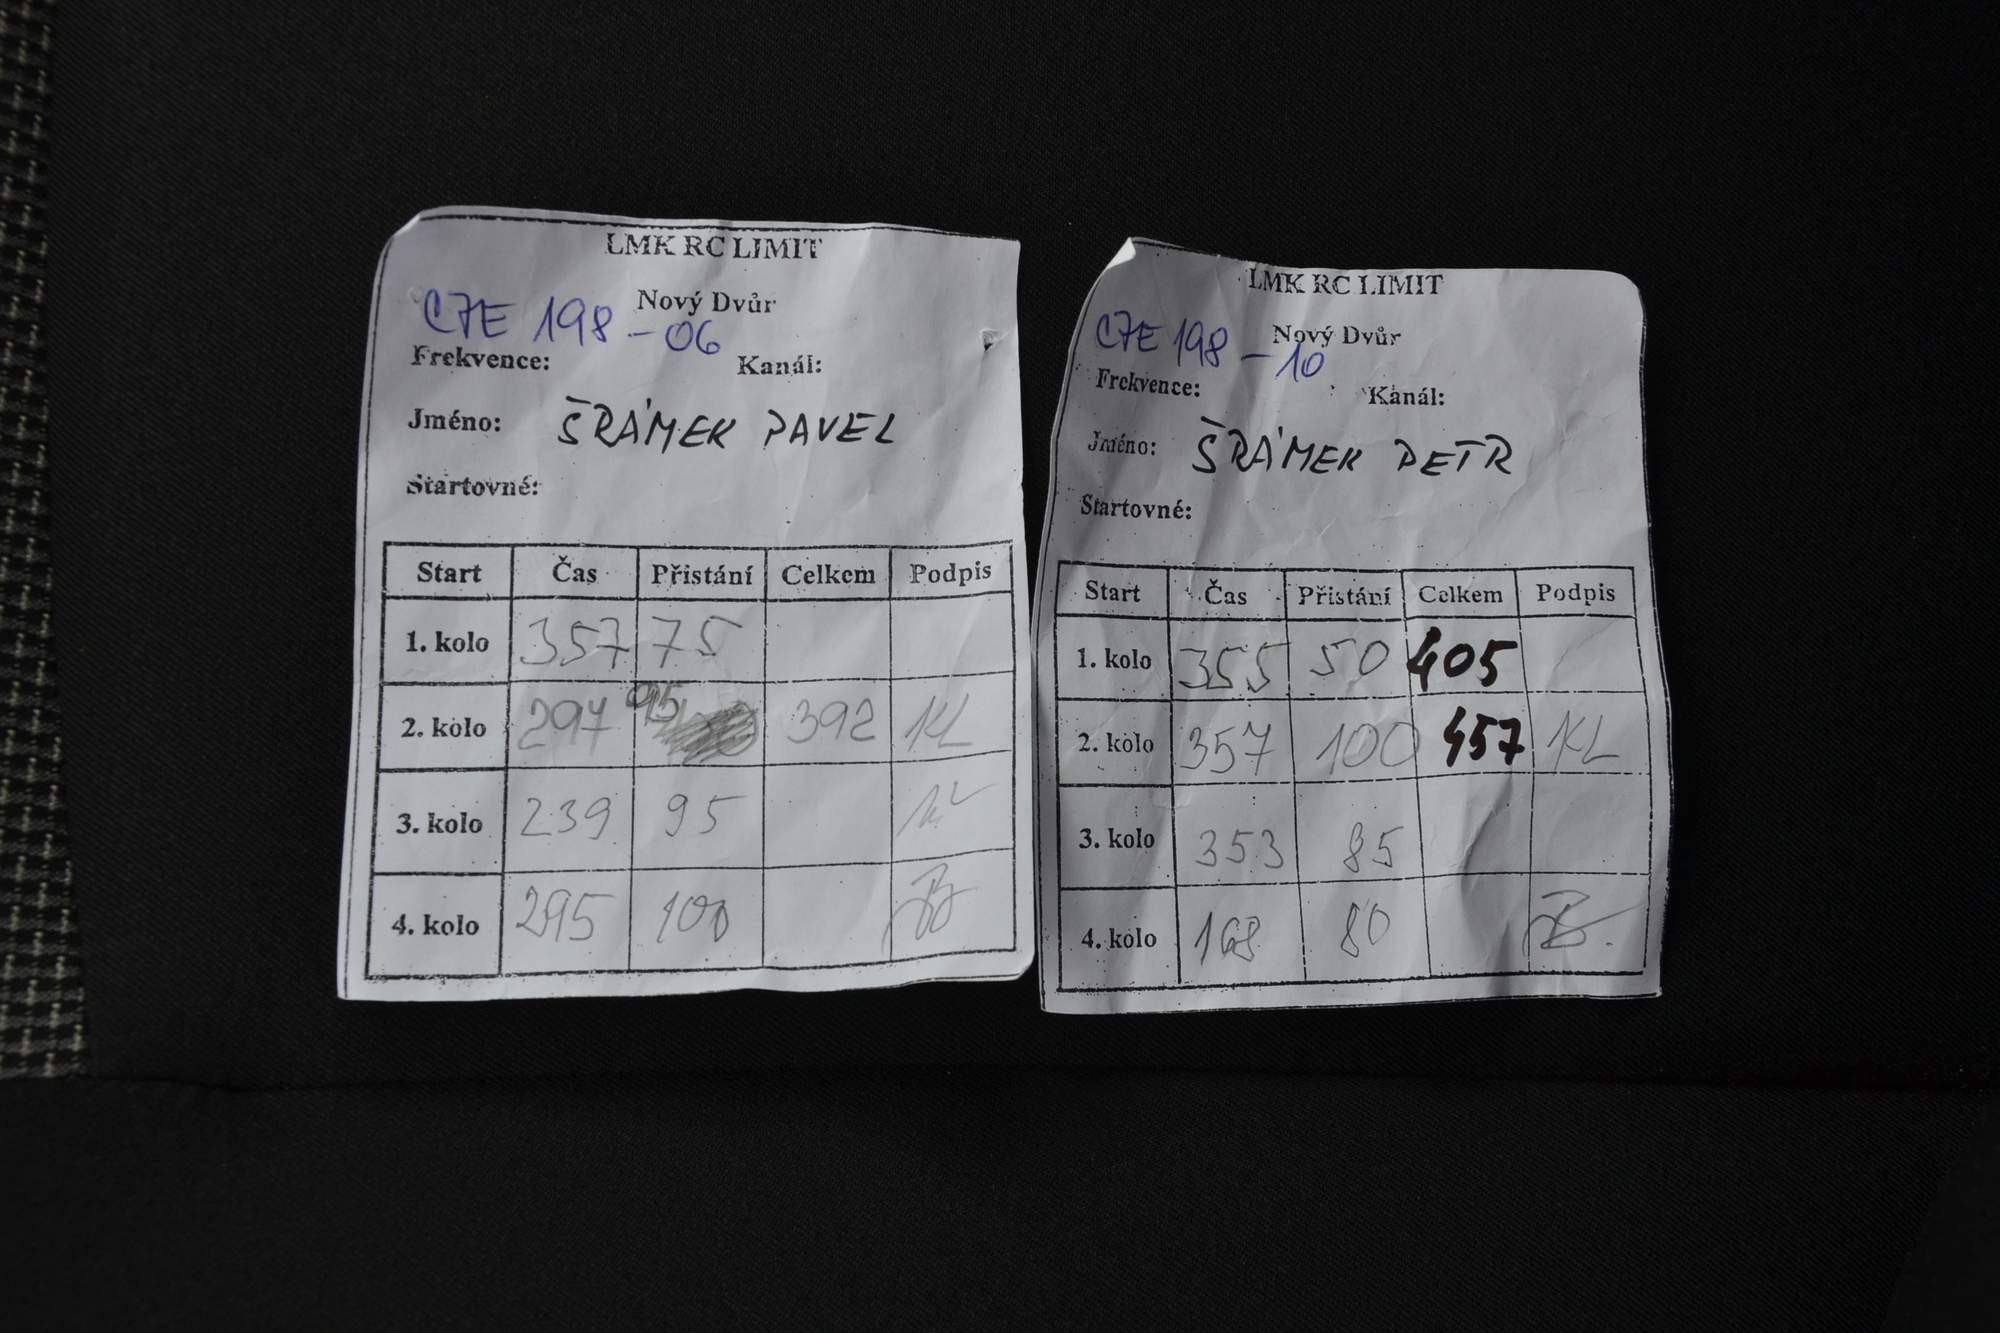 LMK RC LIMIT
Nový Dvůr
CZE 198-06
Frekvence: Kanál:
Jméno: ŠRÁMEK PAVEL
Startovné:
Start Čas Přistání Celkem Podpis
1. kolo 357 75
2. kolo 297 95 392 KL
3. kolo 239 95
4. kolo 295 100
LMK RC LIMIT
Nový Dvůr
CZE 198-10
Frekvence: Kanál:
Jméno: ŠRÁMEK PETR
Startovné:
Start Čas Přistání Celkem Podpis
1. kolo 355 50 405
2. kolo 357 100 457 KL
3. kolo 353 85
4. kolo 168 80